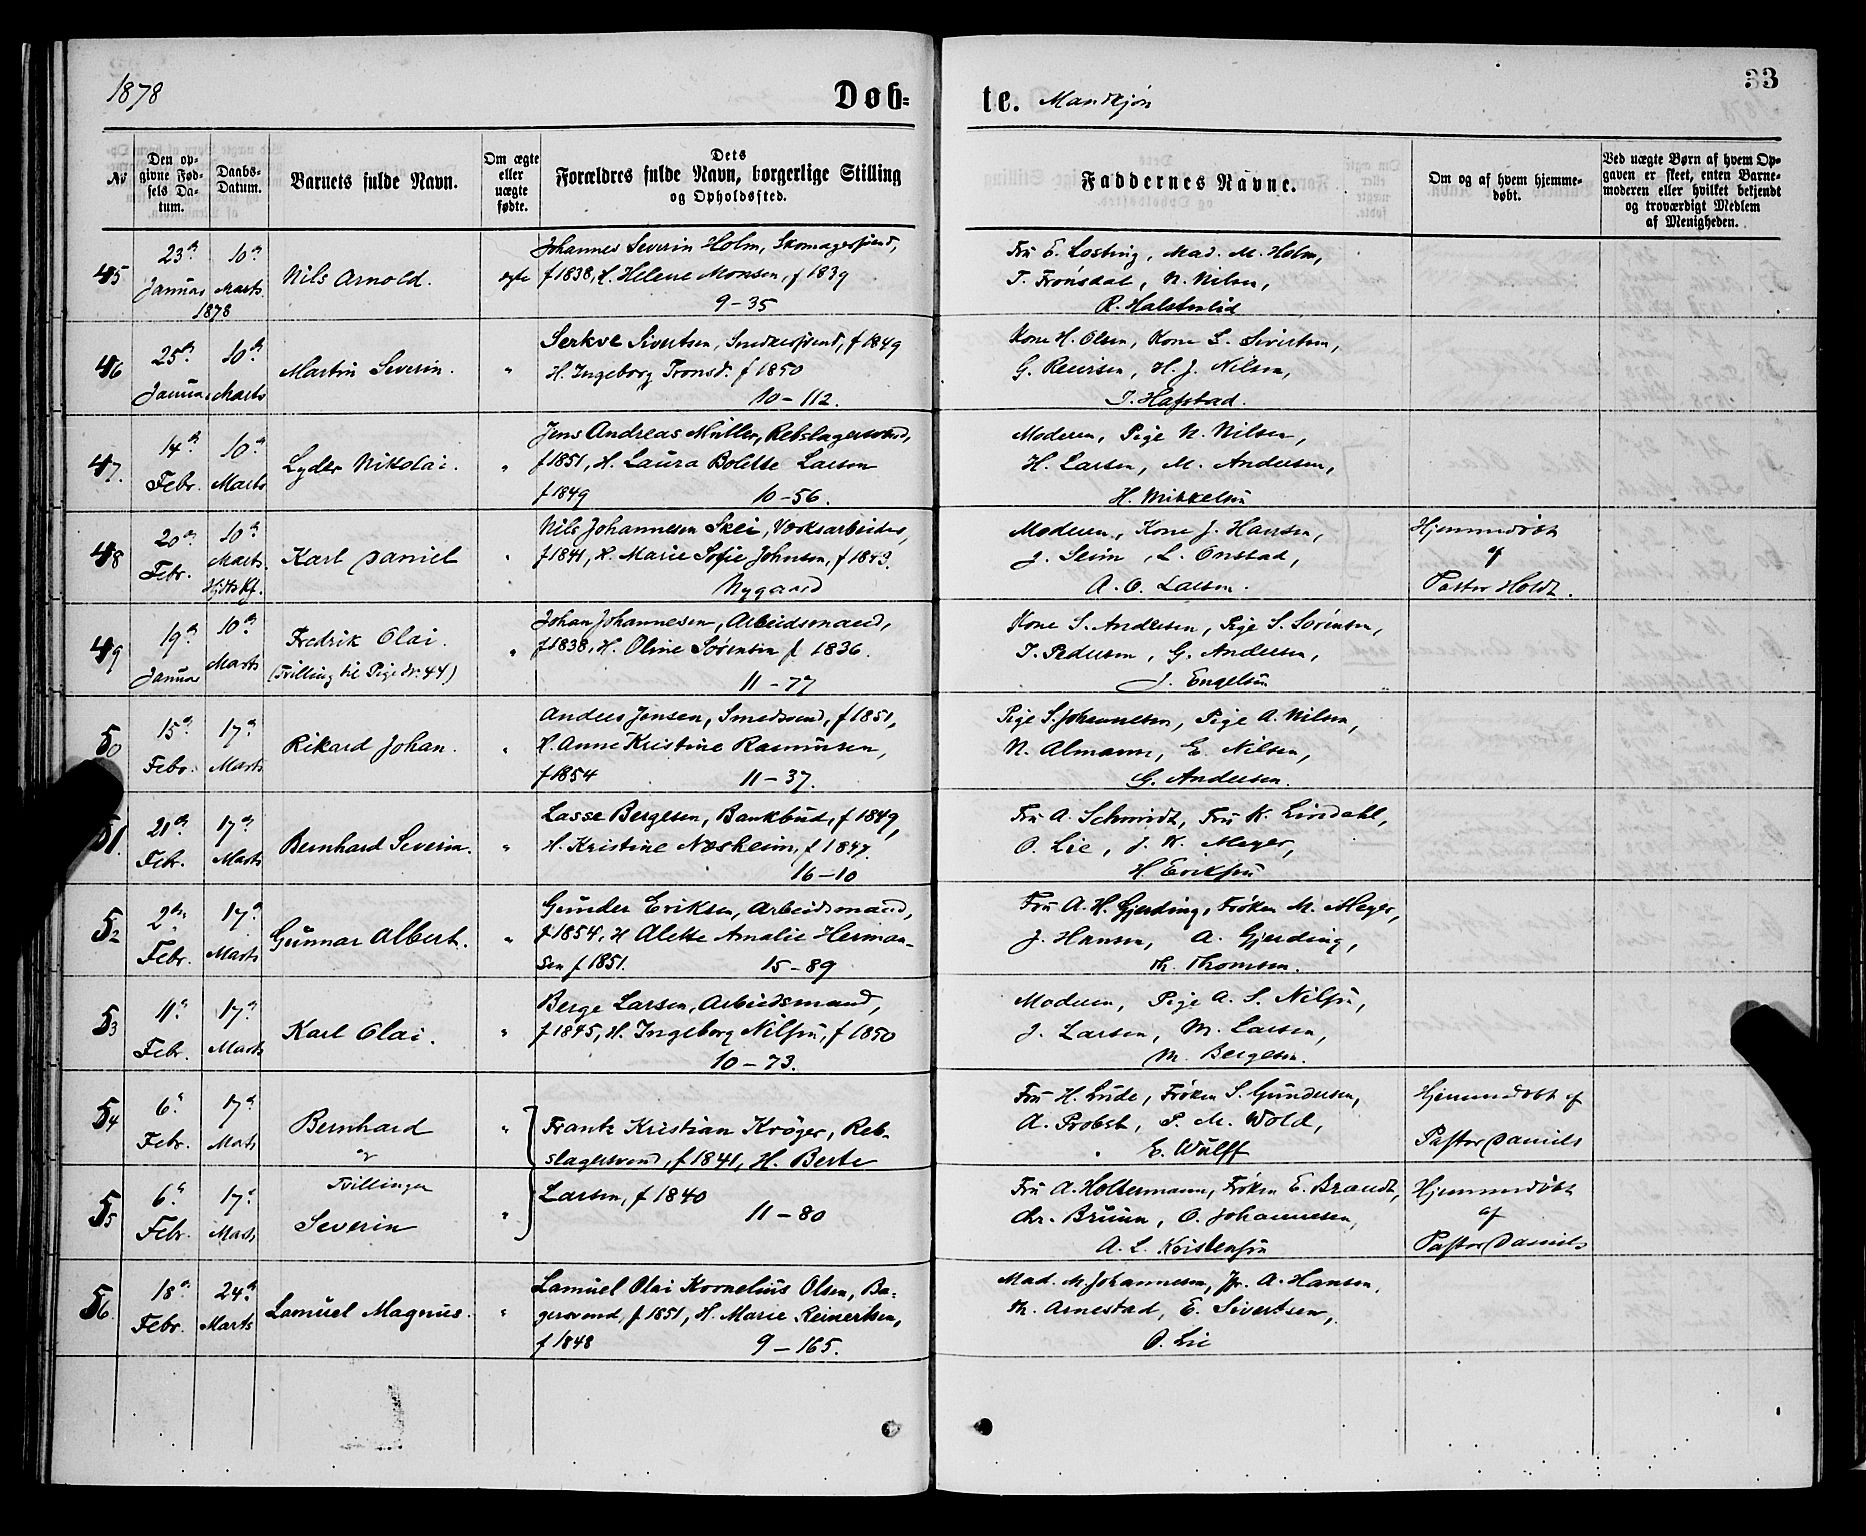 1878
Døb-
te. Mandkjøn
33
No
Den op-
givne Fød-
sels Da-
tum.
Daabs-
Datum.
Barnets fulde Navn.
Om ægte
eller
uægte
fødte.
Dets
Forældres fulde Navn, borgerlige Stilling
og Opholdssted.
Faddernes Navne.
Om og af hvem hjemme-
døbt.
Ved uægte Børn af hvem Op-
gaven er skeet, enten Barne-
moderen eller hvilket bekjendt
og troværdigt Medlem
af Menigheden.
45
23de Januar
10de Marts
1878
Nils Arnold.
ægte
Johannes Severin Holm, Skomagersvend,
f 1838, H. Helene Monsen, f 1839
9-35
Fru E. Losting, Mad. M. Holm,
T. Frønsdal, N. Nilsen,
R. Halstenlid
46
25de Januar
10de Marts
Martin Severin.
"
Serkve Sivertsen, Snedkersvend, f 1849
H. Ingeborg Tronsd. f 1850
10-112.
Kone H. Olsen, Kone L. Sivertsen,
G. Reiersen, H. J. Nilsen,
I. Hafstad.
47.
14de Febr.
10de Marts
Lyder Nikolai.
"
Jens Andreas Müller, Rebslagersvend,
f 1851, H. Laura Bolette Larsen
f 1849 10-56.
Moderen, Pige N. Nilsen,
H. Larsen, M. Andersen,
H. Mikkelsen
48
20de Febr.
10de Marts.
Hjdts Kf.
Karl Daniel
"
Nils Johannesen Skei, Værksarbeider,
f 1841, H. Marie Sofie Johnsen, f 1843.
Nygaard
Moderen, Kone J. Hansen,
J. Seim, L. Onstad,
A. O. Larsen.
Hjemmedøbt
af
Pastor Holdt.
49
19de Januar
10de Marts
Fredrik Olai.
(Tvilling til Pige Nr. 44)
"
Johan Johannesen, Arbeidsmand,
f 1838, H. Oline Sørensen f 1836.
11-77
Kone S. Andresen, Pige S. Sørensen,
T. Pedersen, G. Andersen,
J. Engelsen
50
15de Febr.
17de Marts
Rikard Johan.
"
Anders Jensen, Smedsvend, f 1851,
H. Anne Kristine Rasmusen,
f 1854 11-37.
Pige S. Johannesen, Pige A. Nilsen,
N. Almann, E. Nilsen,
G. Andersen.
51.
21de Febr.
17de Marts
Bernhard Severin.
"
Lasse Bergesen, Bankbud, f 1849,
H. Kristine Næsheim, f 1847.
16-10
Fru A. Schmidt, Fru K. Lindahl,
O. Lie, J. K. Meyer,
H. Eriksen
52
2den Febr.
17de Marts
Gunnar Albert.
"
Gunder Eriksen, Arbeidsmand,
f 1854, H Alette Amalie Herman-
sen f 1851. 15-89
Fru A. H. Gjerding, Frøken M. Meyer,
J. Hansen, A. Gjerding,
Th. Thomsen.
53
11de Febr.
17de Marts
Karl Olai.
"
Berge Larsen, Arbeidsmand,
f 1845, H. Ingeborg Nilsen, f 1850
10-73.
Moderen, Pige A. S. Nilsen,
J. Larsen, M. Larsen,
M. Bergesen.
54
6te Febr.
17de Marts
Bernhard
og
"
Frantz Kristian Krøger, Reb-
slagersvend, f 1841, H. Berte
Fru H. Lude, Frøken S. Gundersen,
A. Probst, P. M. Wold,
E. Wulff
Hjemmedøbt af
Pastor Daniels
55
6te Febr.
17de Marts
Tvillinger
Severin
"
Larsen, f 1840
11-80
Fru A. Holtermann, Frøken E. Brandt,
Chr. Bruun, O. Johannesen,
A. L. Kristensen
Hjemmedøbt
af
Pastor Daniels
56.
18de Febr.
24de Marts
Samuel Magnus.
"
Samuel Olai Kornelius Olsen, Ba-
gersvend, f 1851, H. Marie Reinertsen,
f 1848 9-165.
Mad. M. Johannesen, Jfr. A. Hansen,
Th. Arnestad, E. Sivertsen,
O. Lie